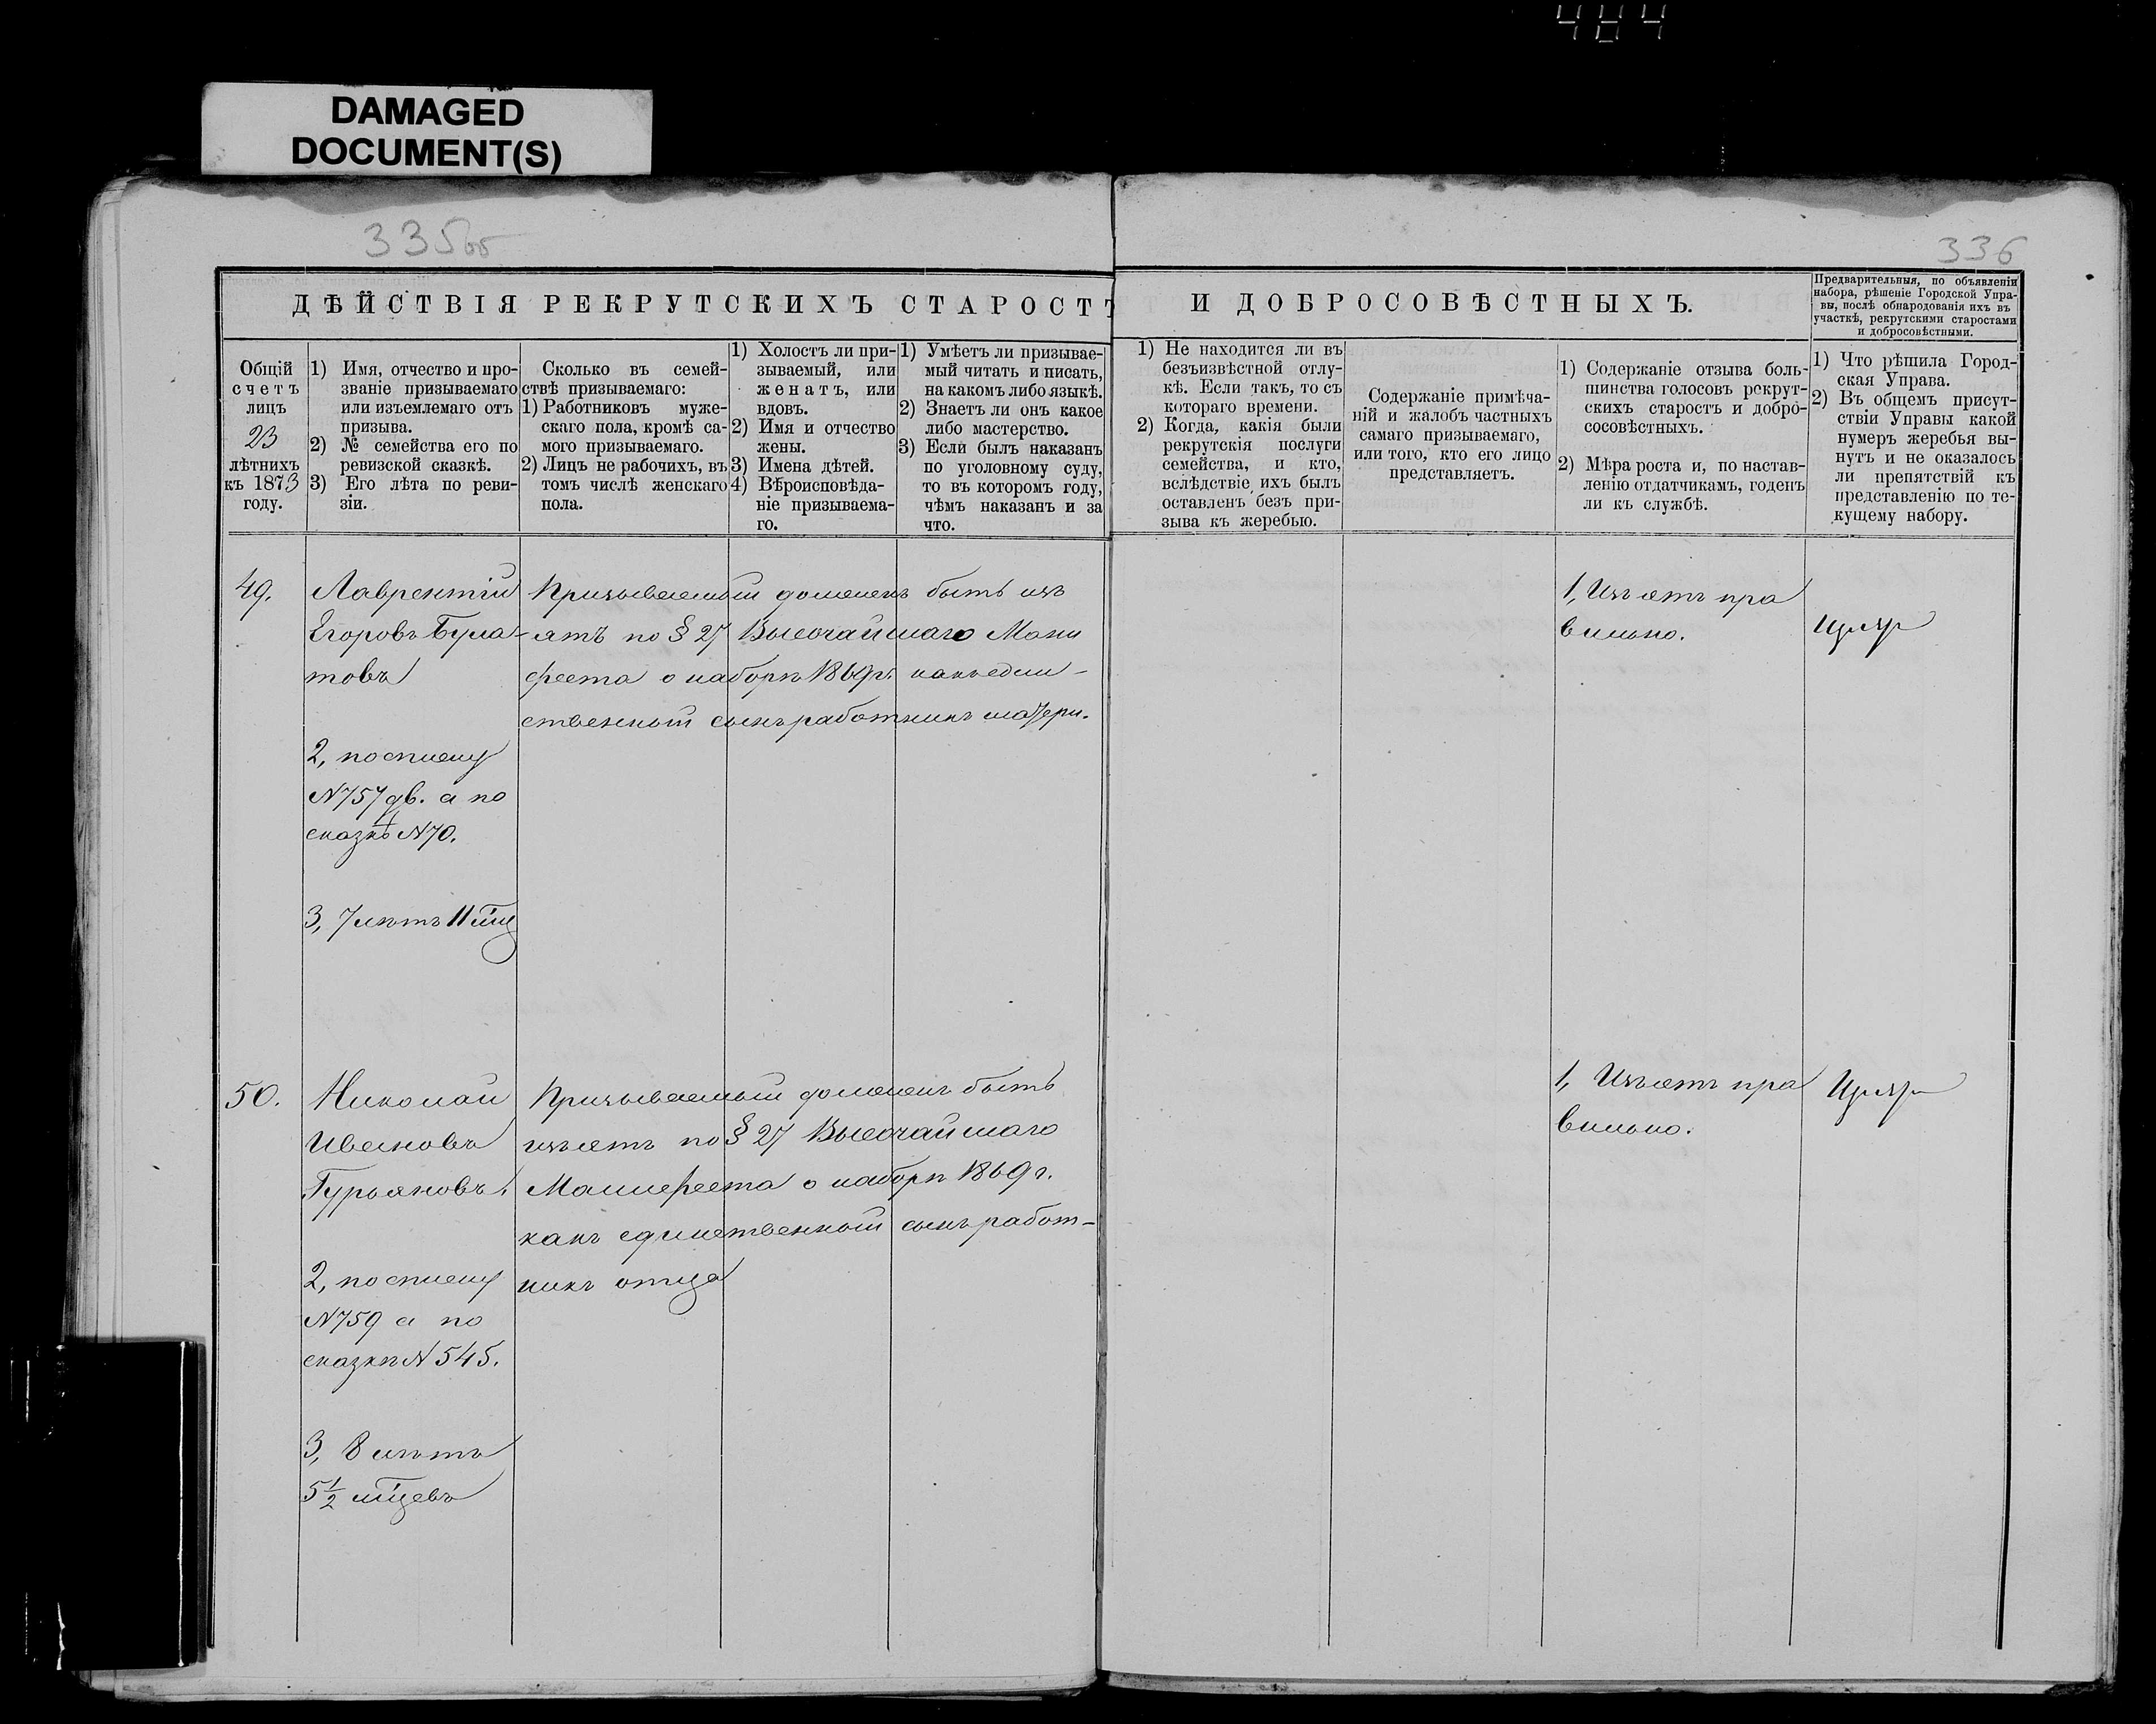 484
DAMAGED
DOCUMENT(S)
335об
336
ДѢЙСТВІЯ РЕКРУТСКИХЪ СТАРОСТЪ
И ДОБРОСОВѢСТНЫХЪ.
Предварительныя, по объявленіи
набора, рѣшеніе Городской Упра-
вы, послѣ обнародованія ихъ въ
участкѣ, рекрутскими старостами
и добросовѣстными.
Общій
счетъ
лицъ
23
лѣтнихъ
къ 1873
году.
1) Имя, отчество и про-
званіе призываемаго
или изъемлемаго отъ
призыва.
2) № семейства его по
ревизской сказкѣ.
3) Его лѣта по реви-
зіи.
Сколько въ семей-
ствѣ призываемаго:
1) Работниковъ муже-
скаго пола, кромѣ са-
мого призываемаго.
2) Лицъ не рабочихъ, въ
томъ числѣ женскаго
пола.
1) Холостъ ли при-
зываемый, или
женатъ, или
вдовъ.
2) Имя и отчество
жены.
3) Имена дѣтей.
4) Вѣроисповѣда-
ніе призываема-
го.
1) Умѣетъ ли призывае-
мый читать и писать,
на какомъ либо языкѣ.
2) Знаетъ ли онъ какое
либо мастерство.
3) Если былъ наказанъ
по уголовному суду,
то въ которомъ году,
чѣмъ наказанъ и за
что.
1) Не находится ли въ
безъизвѣстной отлу-
кѣ. Если такъ, то съ
котораго времени.
2) Когда, какія были
рекрутскія послуги
семейства, и кто,
вслѣдствіе ихъ былъ
оставленъ безъ при-
зыва къ жеребью.
Содержаніе примѣча-
ній и жалобъ частныхъ
самаго призываемаго,
или того, кто его лицо
представляетъ.
1) Содержаніе отзыва боль-
шинства голосовъ рекрут-
скихъ старостъ и добро-
сосовѣстныхъ.
2) Мѣра роста и, по настав-
ленію отдатчикамъ, годенъ
ли къ службѣ.
1) Что рѣшила Город-
ская Управа.
2) Въ общемъ присут-
ствіи Управы какой
нумеръ жеребья вы-
нутъ и не оказалось
ли препятствій къ
представленію по те-
кущему набору.
49.
Лаврентій
Егоровъ Була-
товъ
2, по списку
№757 дв. а по
сказкѣ №70.
3, 7 лѣтъ 11 мц
Призываемый долженъ быть изъ
ятъ по § 27 Высочайшаго Мани
феста о наборѣ 1869 г. какъ един-
ственный сынъ работникъ матери.
1, Изъятъ пра
вильно.
50.
Николай
Ивановъ
Гурьяновъ.
2, по списку
№759 а по
сказкѣ №545.
3, 8 лѣтъ
5½ мцевъ
Призываемый долженъ быть
изъятъ по § 27 Высочайшаго
Манифеста о наборѣ 1869 г.
какъ единственный сынъ работ-
никъ отца
1, Изъятъ пра
вильно.